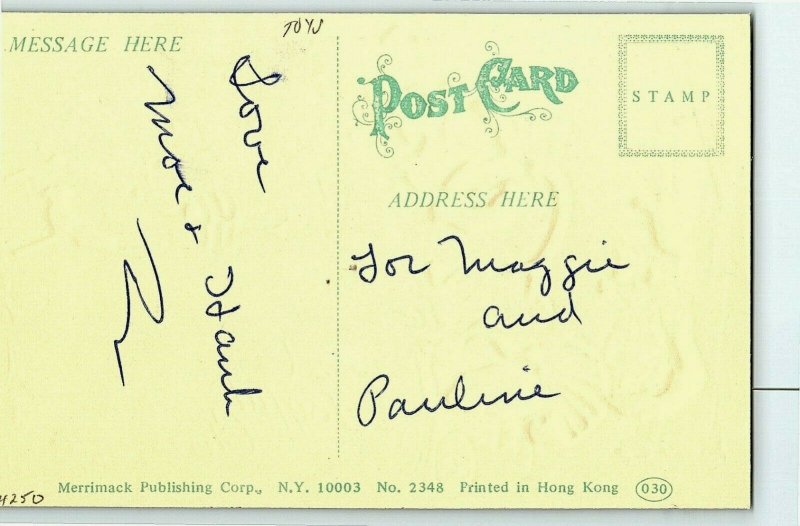 TOYS
MESSAGE HERE
Love
Moe & Hank
POST CARD
STAMP
ADDRESS HERE
For Maggie
and
Pauline
4250
Merrimack Publishing Corp., N.Y. 10003 No. 2348 Printed in Hong Kong 030